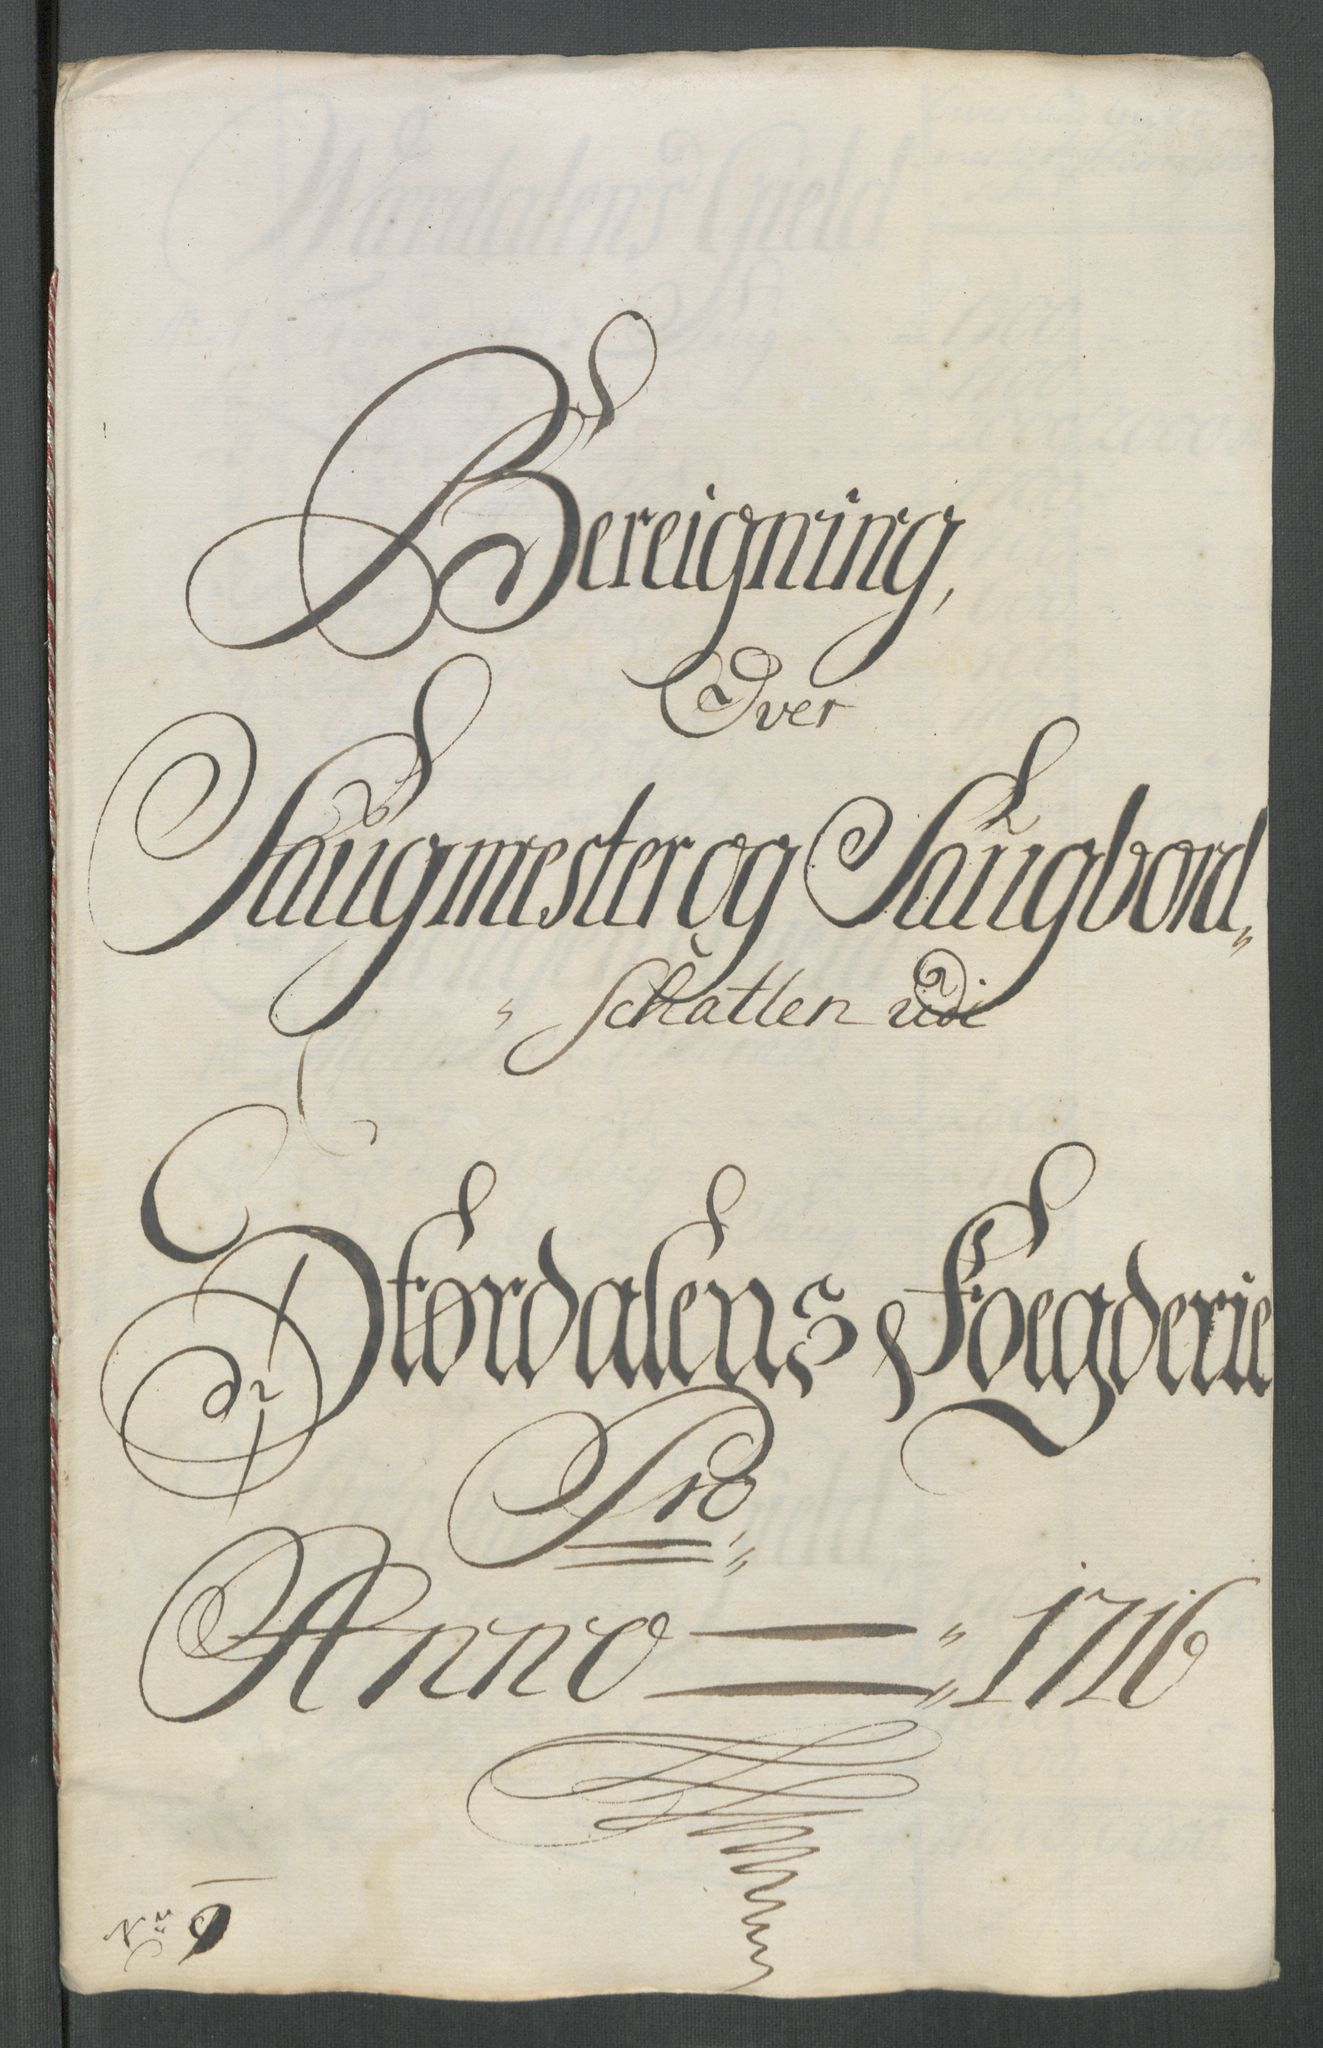 Bereigning,
Over
Saugmester og Saugbord„
„Schatten udi
Størdalens Foegderie
Pro„
Anno — „ 1716
No 9